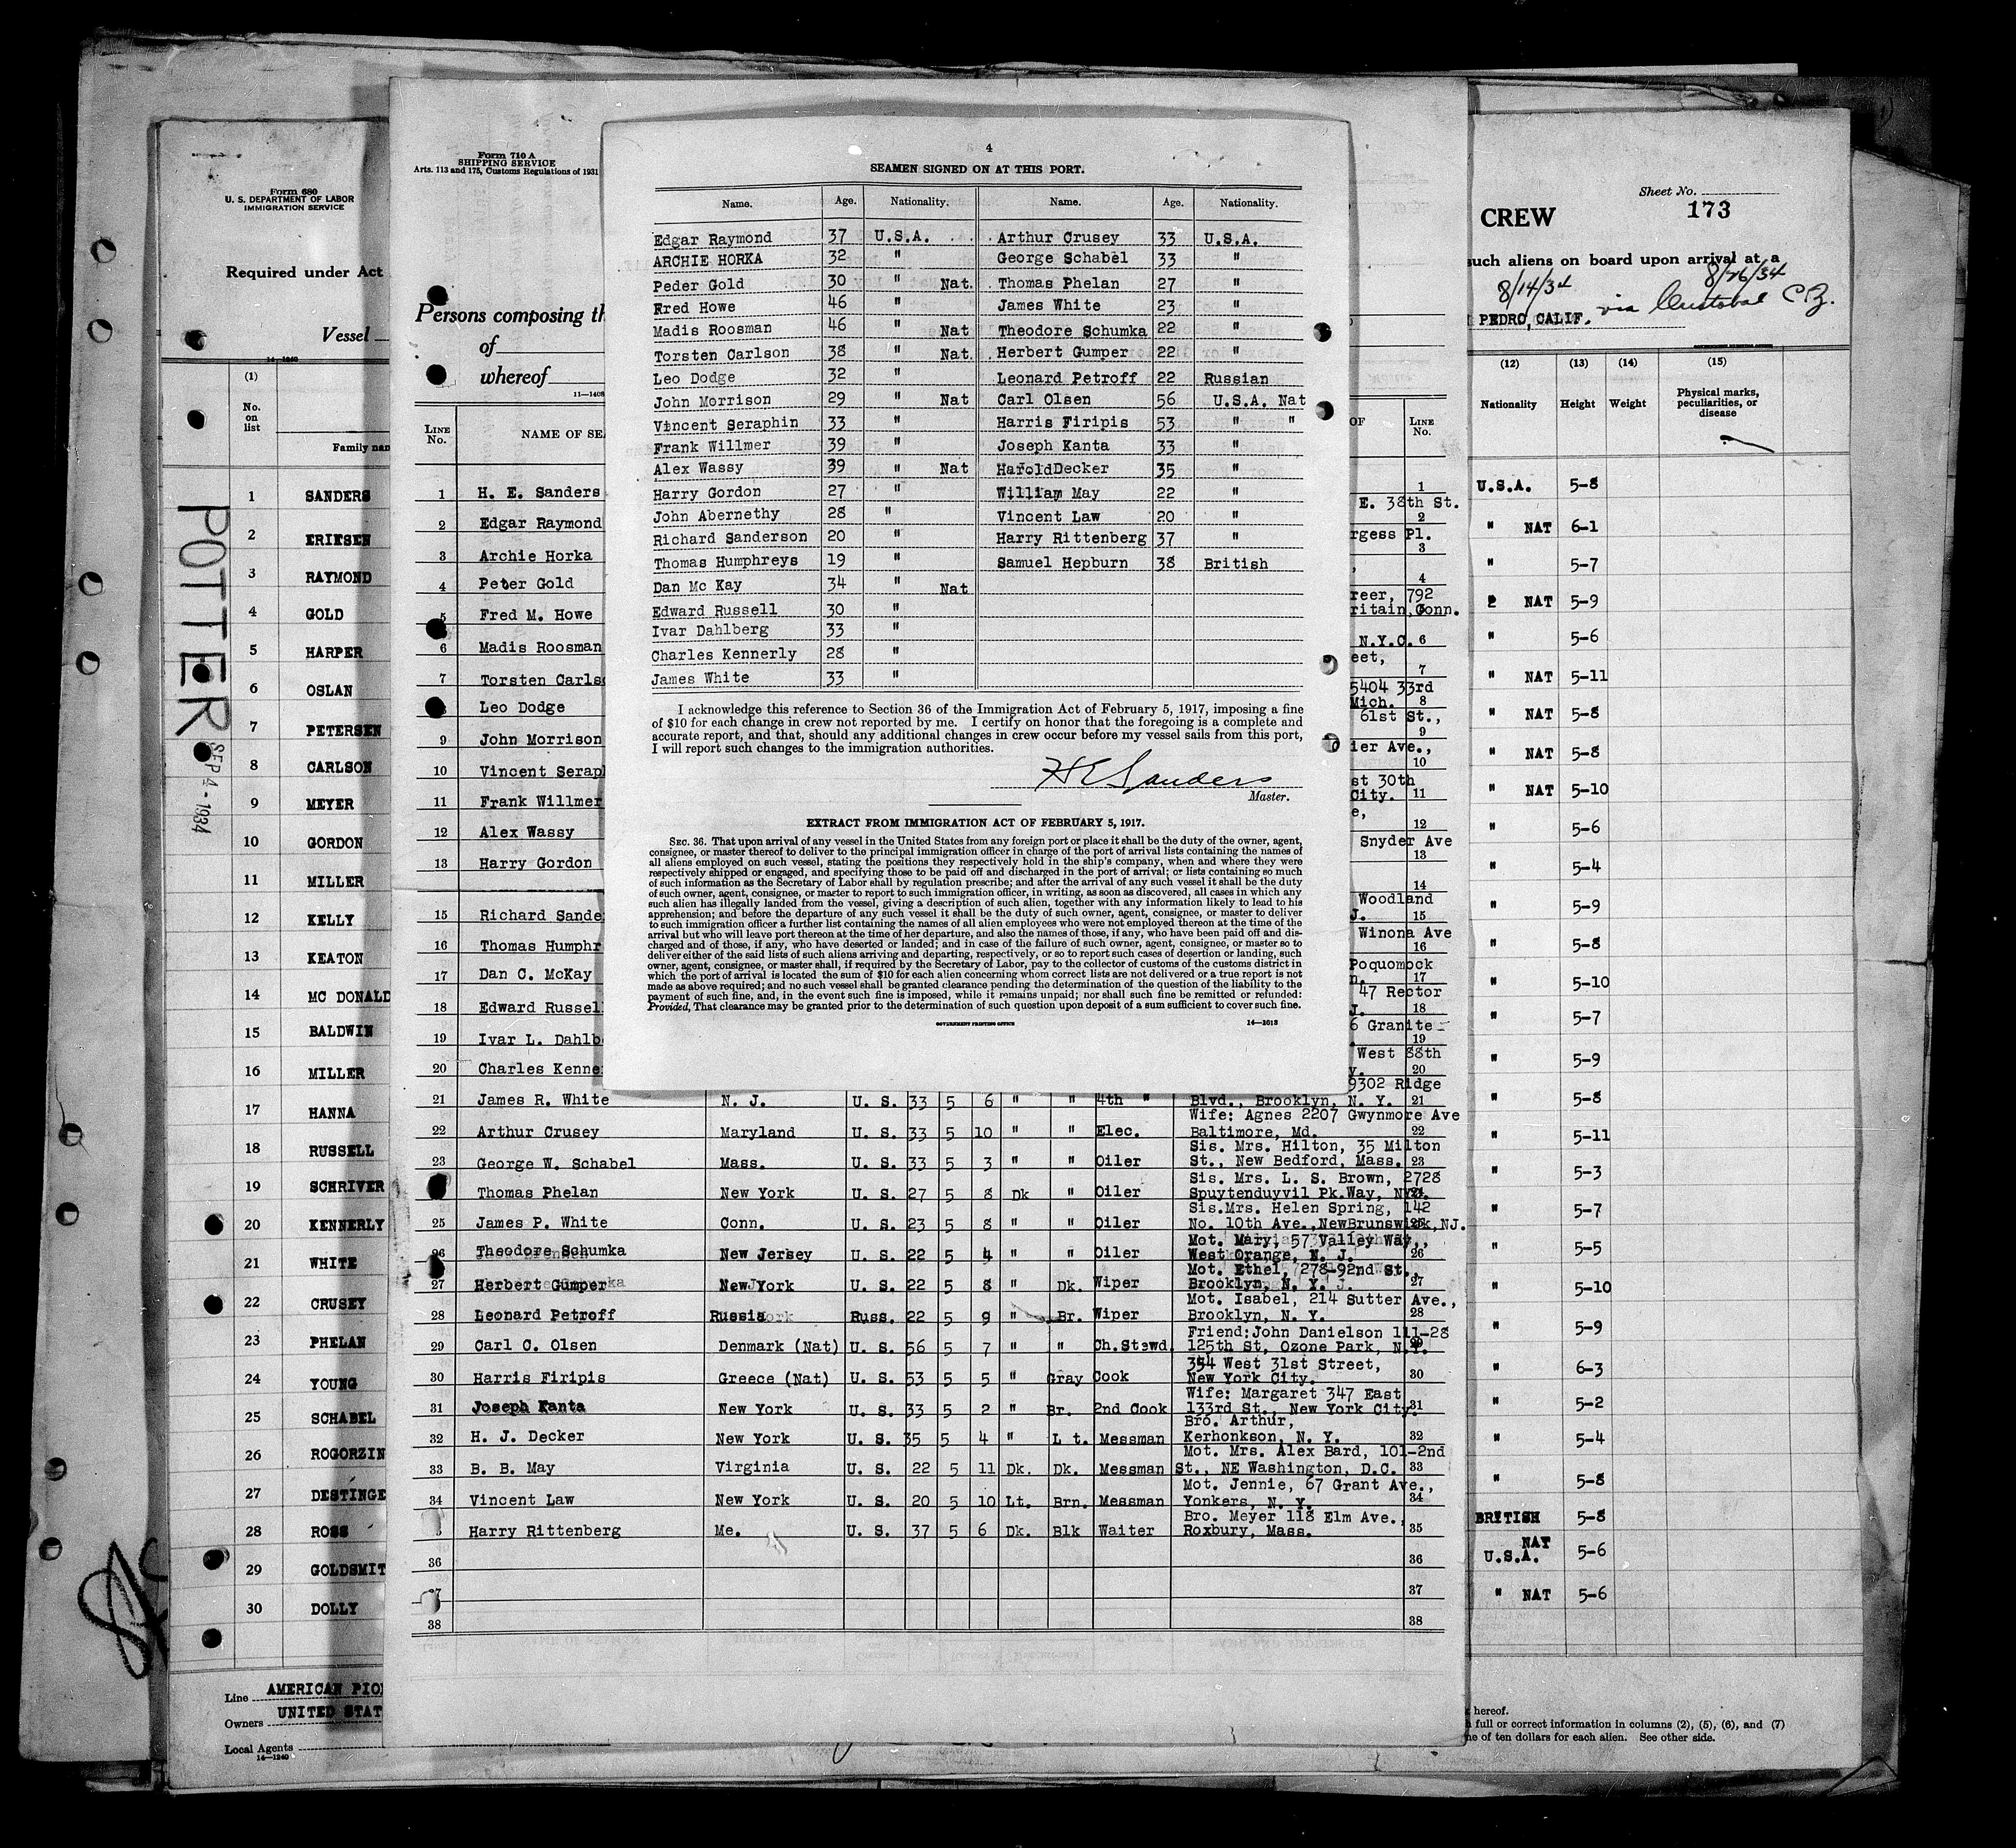 Form 680
U. S. DEPARTMENT OF LABOR
IMMIGRATION SERVICE
Required under Act
Vessel
14—1240
(1)
No.
on
list
Family nam
1 SANDERS
2 ERIKSEN
3 RAYMOND
4 GOLD
5 HARPER
6 OSLAN
7 PETERSEN
8 CARLSON
9 MEYER
10 GORDON
11 MILLER
12 KELLY
13 KEATON
14 MC DONALD
15 BALDWIN
16 MILLER
17 HANNA
18 RUSSELL
19 SCHRIVER
20 KENNERLY
21 WHITE
22 CRUSEY
23 PHELAN
24 YOUNG
25 SCHABEL
26 ROGORZIN
27 DESTINGE
28 ROSS
29 GOLDSMIT
30 DOLLY
Line AMERICAN PIO
Owners UNITED STAT
Local Agents
14—1240
POTTER
SEP 4 - 1934
Form 710 A
SHIPPING SERVICE
Arts. 113 and 175, Customs Regulations of 1931
Persons composing th
of
whereof
11—1408
LINE
No.
NAME OF SEA
1 H. E. Sanders
2 Edgar Raymond
3 Archie Horka
4 Peter Gold
5 Fred M. Howe
6 Madis Roosman
7 Torsten Carls
Leo Dodge
9 John Morrison
10 Vincent Serap
11 Frank Willmer
12 Alex Wassy
13 Harry Gordon
15 Richard Sande
16 Thomas Humphr
17 Dan C. McKay
18 Edward Russel
19 Ivar L. Dahlb
20 Charles Kenne
4
SEAMEN SIGNED ON AT THIS PORT.
Name. Age. Nationality. Name. Age. Nationality.
Edgar Raymond 37 U.S.A. Arthur Crusey 33 U.S.A.
ARCHIE HORKA 32 " George Schabel 33 "
Peder Gold 30 " Nat. Thomas Phelan 27 "
Fred Howe 46 " James White 23 "
Madis Roosman 46 " Nat Theodore Schumka 22 "
Torsten Carlson 38 " Nat. Herbert Gumper 22 "
Leo Dodge 32 " Leonard Petroff 22 Russian
John Morrison 29 " Nat Carl Olsen 56 U.S.A. Nat
Vincent Seraphin 33 " Harris Firipis 53 " "
Frank Willmer 39 " Joseph Kanta 33 "
Alex Wassy 39 " Nat HaroldDecker 35 "
Harry Gordon 27 " William May 22 "
John Abernethy 28 " Vincent Law 20 "
Richard Sanderson 20 " Harry Rittenberg 37 "
Thomas Humphreys 19 " Samuel Hepburn 38 British
Dan Mc Kay 34 " Nat
Edward Russell 30 "
Ivar Dahlberg 33 "
Charles Kennerly 28 "
James White 33 "
I acknowledge this reference to Section 36 of the Immigration Act of February 5, 1917, imposing a fine
of $10 for each change in crew not reported by me. I certify on honor that the foregoing is a complete and
accurate report, and that, should any additional changes in crew occur before my vessel sails from this port,
I will report such changes to the immigration authorities.
H E Sanders
Master.
EXTRACT FROM IMMIGRATION ACT OF FEBRUARY 5, 1917.
SEC. 36. That upon arrival of any vessel in the United States from any foreign port or place it shall be the duty of the owner, agent,
consignee, or master thereof to deliver to the principal immigration officer in charge of the port of arrival lists containing the names of
all aliens employed on such vessel, stating the positions they respectively hold in the ship's company, when and where they were
respectively shipped or engaged, and specifying those to be paid off and discharged in the port of arrival; or lists containing so much
of such information as the Secretary of Labor shall by regulation prescribe; and after the arrival of any such vessel it shall be the duty
of such owner, agent, consignee, or master to report to such immigration officer, in writing, as soon as discovered, all cases in which any
such alien has illegally landed from the vessel, giving a description of such alien, together with any information likely to lead to his
apprehension; and before the departure of any such vessel it shall be the duty of such owner, agent, consignee, or master to deliver
to such immigration officer a further list containing the names of all alien employees who were not employed thereon at the time of the
arrival but who will leave port thereon at the time of her departure, and also the names of those, if any, who have been paid off and dis-
charged and of those, if any, who have deserted or landed; and in case of the failure of such owner, agent, consignee, or master so to
deliver either of the said lists of such aliens arriving and departing, respectively, or so to report such cases of desertion or landing, such
owner, agent, consignee, or master shall, if required by the Secretary of Labor, pay to the collector of customs of the customs district in
which the port of arrival is located the sum of $10 for each alien concerning whom correct lists are not delivered or a true report is not
made as above required; and no such vessel shall be granted clearance pending the determination of the question of the liability to the
payment of such fine, and, in the event such fine is imposed, while it remains unpaid; nor shall such fine be remitted or refunded:
Provided, That clearance may be granted prior to the determination of such question upon deposit of a sum sufficient to cover such fine.
GOVERNMENT PRINTING OFFICE 14—2613
OF LINE
No.
1
E. 38th St.
2
rgess Pl.
3
4
reer, 792
ritain, Conn.
N.Y.C. 6
eet,
7
5404 33rd
Mich. 8
61st St.,
9
ier Ave.,
10
st 30th
City. 11
e,
12
Snyder Ave
13
14
Woodland
J. 15
Winona Ave
16
Poquomock
n. 17
47 Rector
J. 18
6 Granite
19
West 88th
y. 20
9302 Ridge
21 James R. White N. J. U. S. 33 5 6 " " 4th " Blvd., Brooklyn, N. Y. 21
Wife: Agnes 2207 Gwynmore Ave
22 Arthur Crusey Maryland U. S. 33 5 10 " " Elec. Baltimore, Md. 22
Sis. Mrs. Hilton, 35 Milton
23 George W. Schabel Mass. U. S. 33 5 3 " " Oiler St., New Bedford, Mass. 23
Sis. Mrs. L. S. Brown, 2728
Thomas Phelan New York U. S. 27 5 8 Dk " Oiler Spuytenduyvil Pk.Way, NY.
Sis.Mrs. Helen Spring, 142
25 James P. White Conn. U. S. 23 5 8 " " Oiler No. 10th Ave.,NewBrunswick,NJ.
Mot. Mary, 57 Valley Way,
26 Theodore Schumka New Jersey U. S. 22 5 4 " " Oiler West Orange, N. J. 26
Mot. Ethel, 278-92nd St.
27 Herbert Gumper New York U. S. 22 5 8 " Dk. Wiper Brooklyn, N. Y. 27
Mot. Isabel, 214 Sutter Ave.,
28 Leonard Petroff Russia Russ. 22 5 9 " Br. Wiper Brooklyn, N. Y. 28
Friend:John Danielson 111-28
29 Carl C. Olsen Denmark (Nat) U. S. 56 5 7 " " Ch.Stewd. 125th St, Ozone Park, N.Y.
354 West 31st Street,
30 Harris Firipis Greece (Nat) U. S. 53 5 5 " Gray Cook New York City. 30
Wife: Margaret 347 East
31 Joseph Kanta New York U. S. 33 5 2 " Br. 2nd Cook 133rd St., New York City 31
Bro. Arthur,
32 H. J. Decker New York U. S. 35 5 4 " L t. Messman Kerhonkson, N. Y. 32
Mot. Mrs. Alex Bard, 101-2nd
33 B. B. May Virginia U. S. 22 5 11 Dk. Dk. Messman St., NE Washington, D.C. 33
Mot. Jennie, 67 Grant Ave.,
34 Vincent Law New York U. S. 20 5 10 Lt. Brn. Messman Yonkers, N. Y. 34
Bro. Meyer 118 Elm Ave.,
Harry Rittenberg Me. U. S. 37 5 6 Dk. Blk Waiter Roxbury, Mass. 35
36 36
37
38 38
Sheet No.
173
CREW
such aliens on board upon arrival at a
8/14/34 8/26/34
PEDRO, CALIF. via Cristobal C Z.
(12) (13) (14) (15)
Nationality Height Weight Physical marks,
peculiarities, or
disease
U.S.A. 5-8
" NAT 6-1
" 5-7
NAT 5-9
" 5-6
" NAT 5-11
" NAT 5-8
" NAT 5-8
" NAT 5-10
" 5-6
" 5-4
" 5-9
" 5-8
" 5-10
" 5-7
" 5-9
" 5-8
" 5-11
" 5-3
" 5-7
" 5-5
" 5-10
" 5-9
" 6-3
" 5-2
" 5-4
" 5-8
BRITISH 5-8
NAT
U.S.A. 5-6
" NAT 5-6
hereof.
full or correct information in columns (2), (5), (6), and (7)
ne of ten dollars for each alien. See other side.